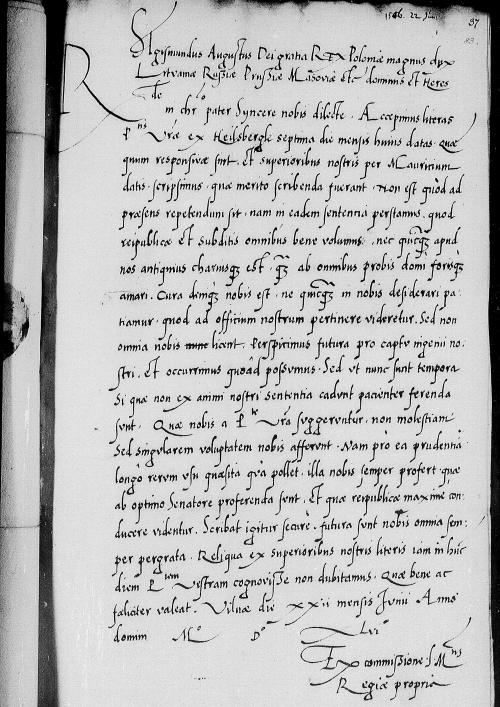 1546. 22 Jun
37
83.
Sigismundus Augustus Dei gratia Rex Poloniæ magnus dux
Litvaniæ Russiæ Prussiæ Masoviæ etc dominus et Heres
Rde in chro pater Syncere nobis dilecte. Accepimus literas
P nis Vræ ex Heilsbergk septima die mensis huius datas. Quæ
quum responsivæ sint, et superioribus nostris per Mauricium
datis. scripsimus. quæ merito scribenda fuerant. Non est quòd ad
præsens repetendum sit. nam in eadem sentencia perstamus. quod
reipublicæ et subditis omnibus bene volumus. nec quicqz apud
nos antiquius chariusqz est. qz ab omnibus probis domi forisqz
amari. Cura deniqz nobis est. ne quicqz in nobis desiderari pa
tiamur. quod ad officium nostrum pertinere videretur. Sed non
omnia nobis nunc licent. Perspicimus futura pro captu ingenii no
stri. Et occurrimus quoad possumus. Sed ut nunc sunt tempora
si quæ non ex animi nostri sententia cadunt pacienter ferenda
sunt. Quæ nobis a P te Vra suggeruntur. non molestiam
sed singularem voluptatem nobis afferunt. Nam pro ea prudentia
longo rerum usu quæsita qua pollet. illa nobis semper profert. quæ
ab optimo Senatore proferenda sunt. Et quæ reipublicæ maxime con
ducere videntur. Scribat igitur secure. futura sunt nobis omnia sem
per pergrata. Reliqua ex superioribus nostris literis iam in hunc
diem P tem Vestram cognovisse non dubitamus. Quæ bene ac
fæliciter valeat. Vilnæ die xxii mensis Junii Anno
domini Mo Do xLvio
Ex commissione S Mtis
Regiæ propria